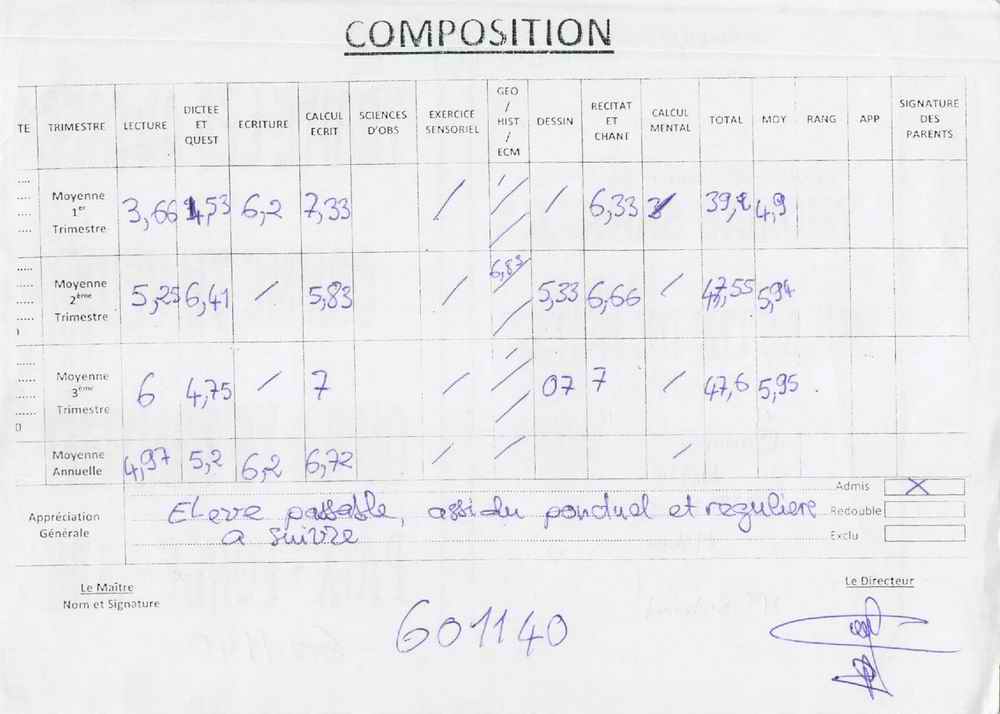 COMPOSITION
TE TRIMESTRE LECTURE DICTEE ET QUEST ECRITURE CALCUL ECRIT SCIENCES D'OBS EXERCICE SENSORIEL GEO / HIST / ECM DESSIN RECITAT ET CHANT CALCUL MENTAL TOTAL MOY RANG APP SIGNATURE DES PARENTS
Moyenne 1er Trimestre 3,66 4,53 6,2 7,33 / / / / 6,33 39,2 4,9
Moyenne 2ème Trimestre 5,25 6,41 / 5,83 / 6,87 / / 5,33 6,66 / 47,55 5,94
Moyenne 3ème Trimestre 6 4,75 / 7 / / / / 07 7 / 47,6 5,95
Moyenne Annuelle 4,97 5,2 6,2 6,72 / / /
Appréciation Générale
Eleve passable, assidu ponctuel et reguliere
a suivre
Admis X
Redouble
Exclu
Le Maître
Nom et Signature
Le Directeur
601140